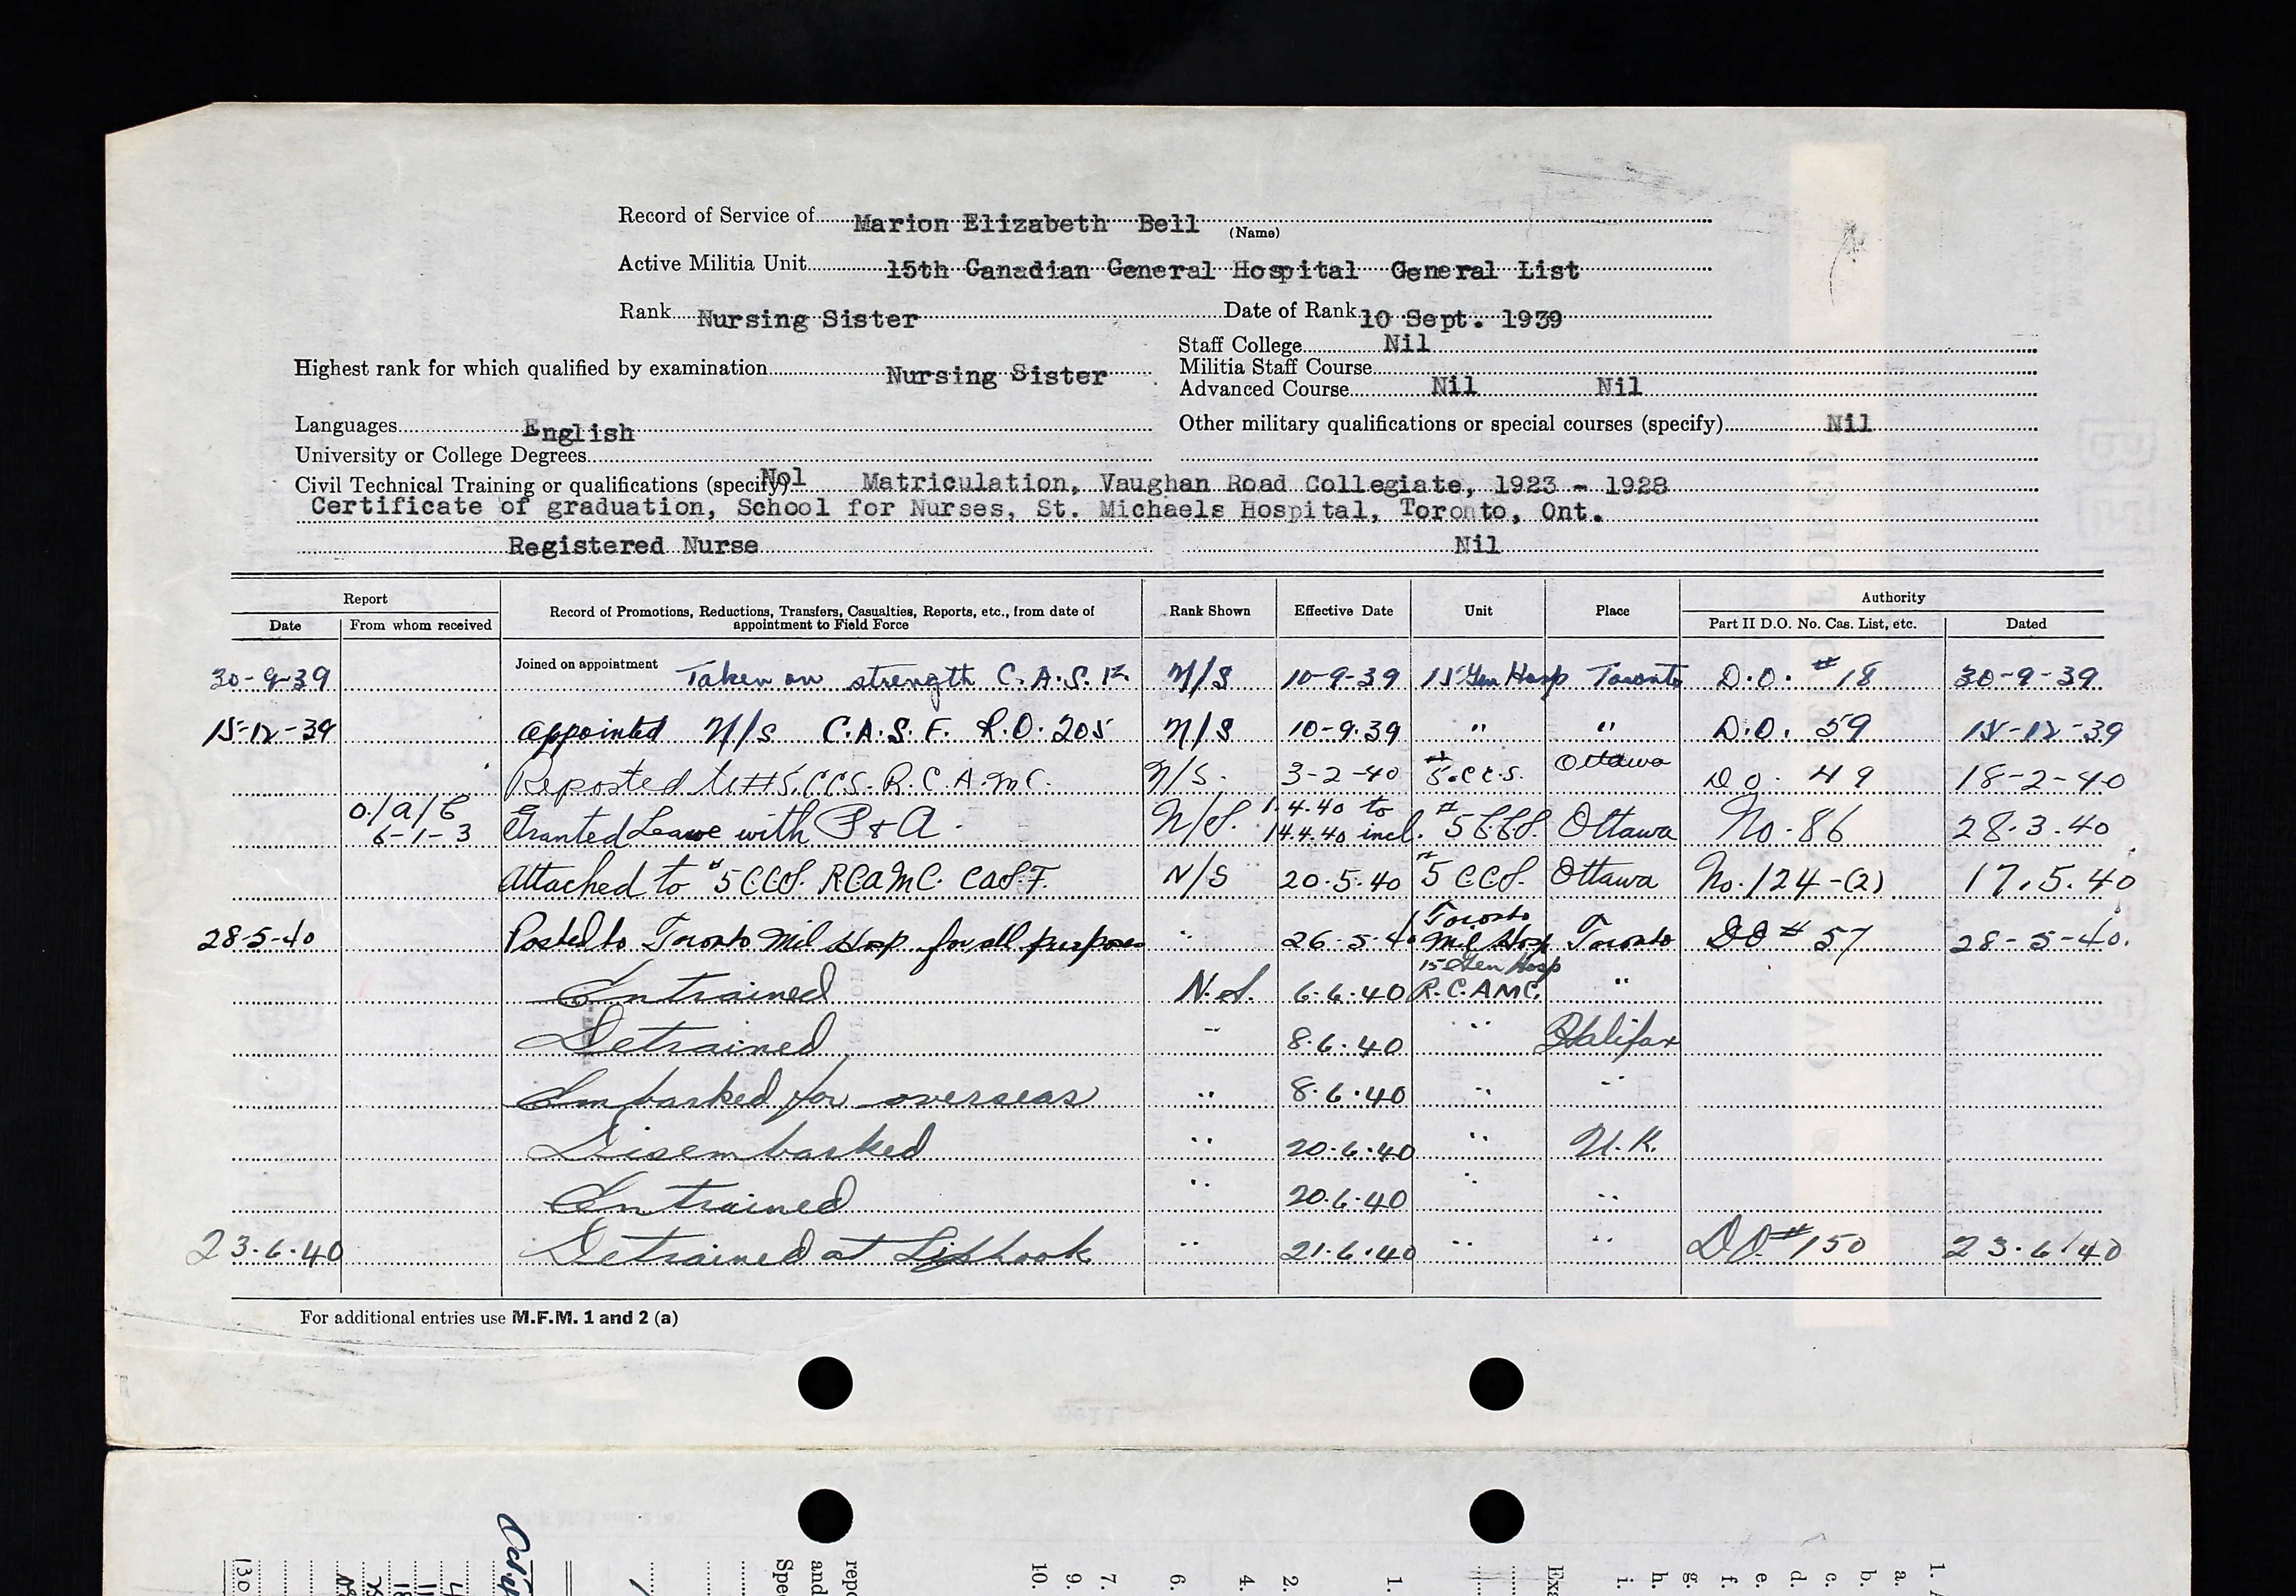 Record of Service of Marion Elizabeth Bell
(Name)
Active Militia Unit 15th Canadian General Hospital General List
Rank Nursing Sister Date of Rank 10 Sept. 1939
Staff College Nil
Highest rank for which qualified by examination Nursing Sister Militia Staff Course
Advanced Course Nil Nil
Languages English Other military qualifications or special courses (specify) Nil
University or College Degrees
Civil Technical Training or qualifications (specify) Matriculation, Vaughan Road Collegiate, 1923 - 1928
Certificate of graduation, School for Nurses, St. Michaels Hospital, Toronto, Ont.
Registered Nurse Nil
Report Record of Promotions, Reductions, Transfers, Casualties, Reports, etc., from date of appointment to Field Force Rank Shown Effective Date Unit Place Authority
Date From whom received Part II D.O. No. Cas. List, etc. Dated
30-9-39 Joined on appointment Taken on strength C.A.S.F. N/S 10-9-39 15 Gen Hosp Toronto D.O. #18 30-9-39
15-12-39 Appointed N/S C.A.S.F. R.O. 205 N/S 10-9-39 " " D.O. 59 15-12-39
Reposted to #5 C.C.S. R.C.A.M.C. N/S. 3-2-40 #5 C.C.S. Ottawa D O. 49 18-2-40
6-1-3 Granted Leave with P & A. N/S. 1.4.40 to 14.4.40 incl. #5 CCS. Ottawa No. 86 28.3.40
Attached to #5 CCS. RCAMC. CASF. N/S 20.5.40 #5 CCS. Ottawa No. 124-(2) 17.5.40
28-5-40 Posted to Toronto Mil Hosp for all purposes " 26-5-40 Toronto Mil Hosp Toronto DO # 57 28-5-40.
Entrained N.S. 6.6.40 15 Gen Hosp R.C.A.M.C. "
Detrained " 8.6.40 " Halifax
Embarked for overseas " 8.6.40 " "
Disembarked " 20.6.40 " U.K.
Entrained " 20.6.40 " "
23.6.40 Detrained at Liphook " 21.6.40 " " DO #150 23.6.40
For additional entries use M.F.M. 1 and 2 (a)